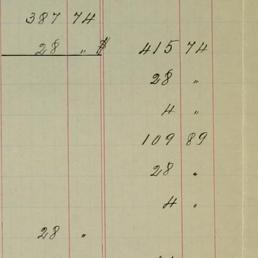 387 74
28 " $ 415 74
28 "
4 "
109 89
28 "
4 "
28 "